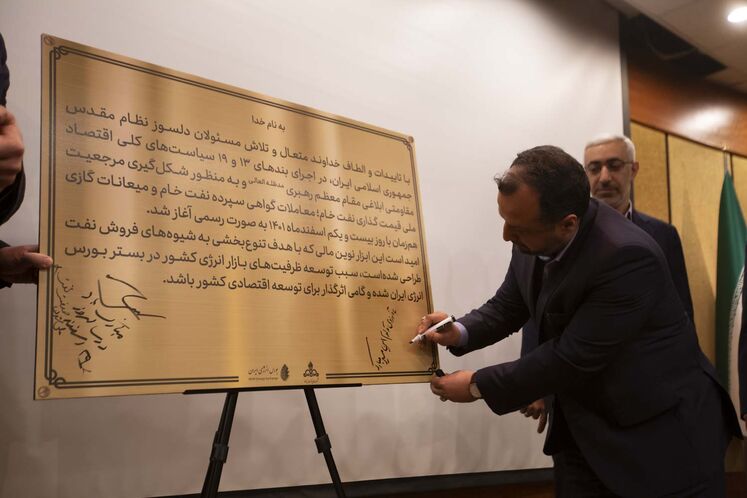 به نام خدا
با تاییدات و الطاف خداوند متعال و تلاش مسئولان دلسوز نظام مقدس
جمهوری اسلامی ایران، در اجرای بندهای ۱۳ و ۱۹ سیاست‌های کلی اقتصاد
مقاومتی ابلاغی مقام معظم رهبری مدظله العالی و به منظور شکل‌گیری مرجعیت
ملی قیمت گذاری نفت خام؛ معاملات گواهی سپرده نفت خام و میعانات گازی
هم‌زمان با روز بیست و یکم اسفندماه ۱۴۰۱ به صورت رسمی آغاز شد.
امید است این ابزار نوین مالی که با هدف تنوع‌بخشی به شیوه‌های فروش نفت
طراحی شده‌است، سبب توسعه ظرفیت‌های بازار انرژی کشور در بستر بورس
انرژی ایران شده و گامی اثرگذار برای توسعه اقتصادی کشور باشد.
بورس انرژی ایران